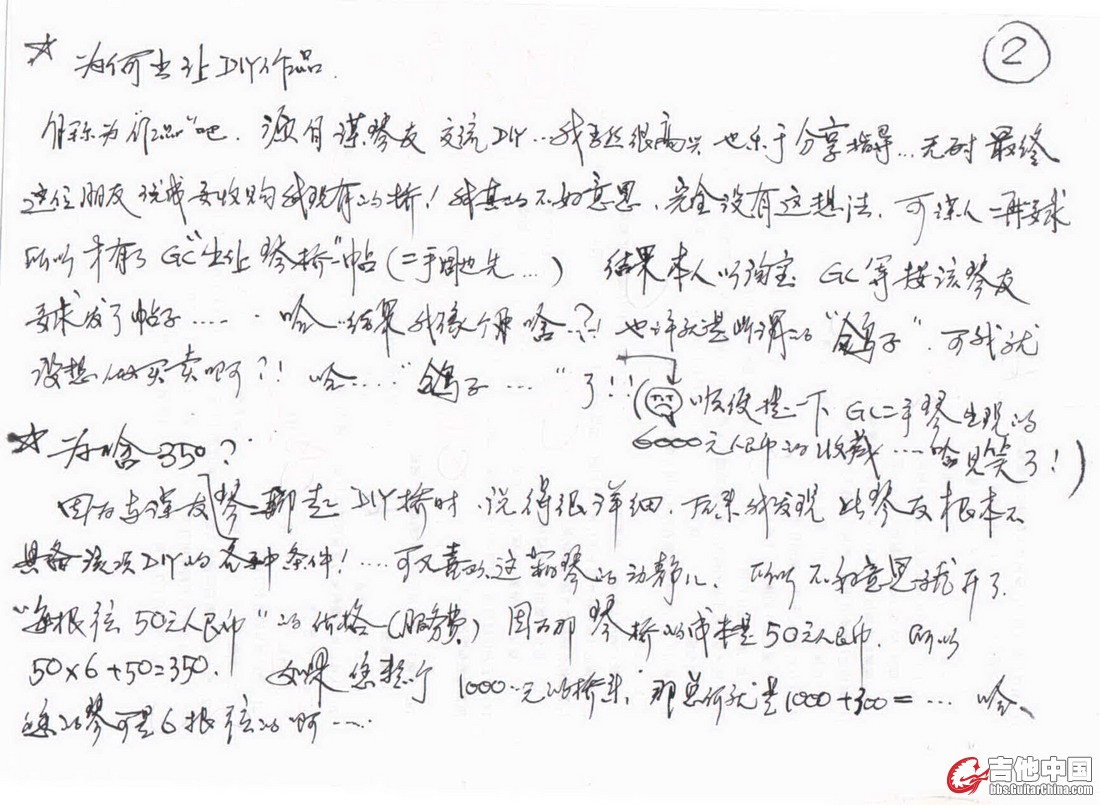 ②
☆ 为何出让DIY作品.
自称为"作品"吧. 源自谋琴友 交流DIY…我当然很高兴 也乐于分享指导… 最终
这位朋友 说成要收购我现有的桥! 我真的不好意思、完全没有这想法. 可谋人一再要求
所以才有了GC"出让琴桥"帖(二手 先…) 结果本人以淘宝 GC等按该琴友
要求发了帖子…… 哈…结果我像个 啥…?! 也许就是所谓的"鸽子". 可我就
没想做买卖啊?! 哈…."鸽子…"了!!
(顺便提一下 GC二手琴出现的
6000元人民币的收藏…哈见笑了!)
☆ 为啥350?
因为与谋友琴聊起DIY桥时、说得很详细. 后来我发现 此琴友根本不
具备该项DIY的各种条件!…可又喜欢这 琴的动静儿. 所以不好意思我开了
"每根弦50元人民币"的价格(服务费) 因为那琴桥的成本是50元人民币. 所以
50×6+50=350. 如果您整个1000元的桥来, 那总价就是1000+300=… 哈、
您的琴可是6根弦的啊……
吉他中国
bbs.GuitarChina.com